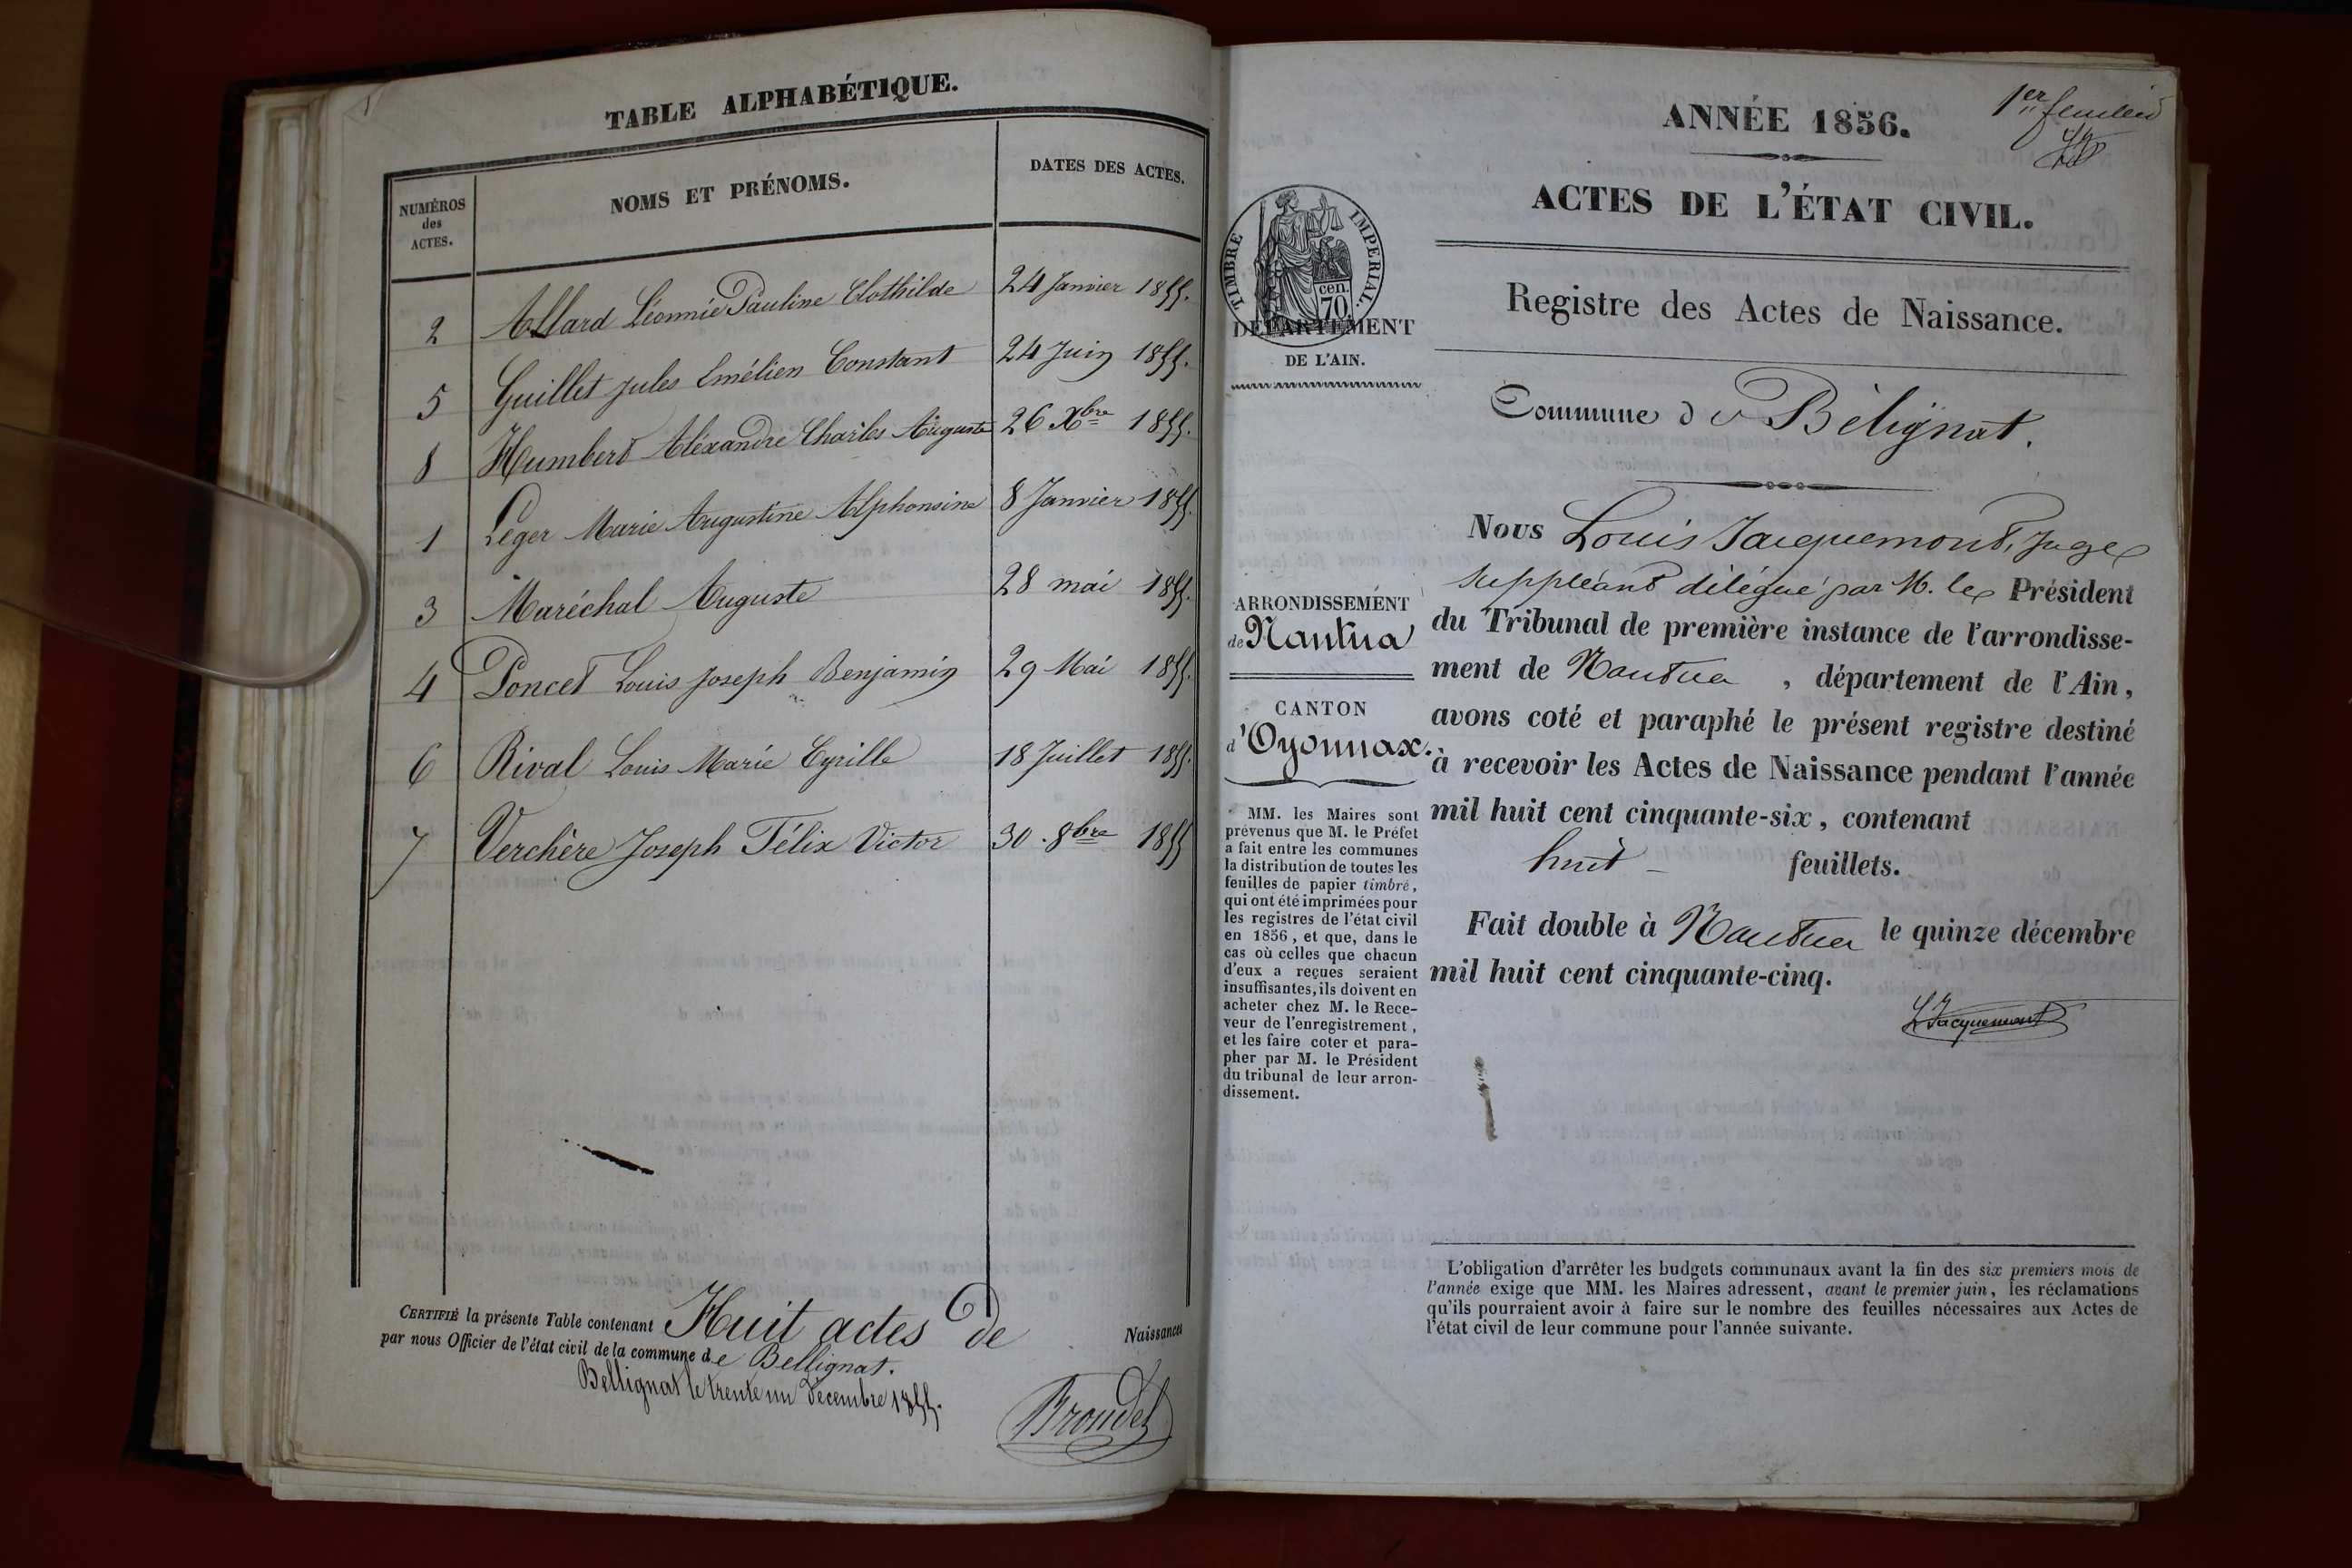 TABLE ALPHABÉTIQUE.
NUMÉROS des ACTES.
NOMS ET PRÉNOMS.
DATES DES ACTES.
2 Allard Léonnie Pauline Clothilde 24 Janvier 1855.
5 Guillet Jules Emélien Constant 24 Juin 1855.
8 Humbert Aléxandre Charles Auguste 26 Xbre 1855.
1 Léger Marie Augustine Alphonsine 8 Janvier 1855.
3 Maréchal Auguste 28 mai 1855.
4 Poncet Louis Joseph Benjamin 29 Mai 1855.
6 Rival Louis Marie Cyrille 18 Juillet 1855.
7 Verchère Joseph Félix Victor 30 . 8bre 1855
CERTIFIÉ la présente Table contenant Huit actes De Naissances
par nous Officier de l'état civil de la commune de Bellignat.
Bellignat le trente un Décembre 1855.
1er feuillet
ANNÉE 1856.
ACTES DE L'ÉTAT CIVIL.
TIMBRE IMPÉRIAL.
cen.
70
DÉPARTEMENT
DE L'AIN.
Registre des Actes de Naissance.
Commune de Bélignat.
ARRONDISSEMENT
de Nantua
CANTON
d'Oyonnax.
MM. les Maires sont
prévenus que M. le Préfet
a fait entre les communes
la distribution de toutes les
feuilles de papier timbré,
qui ont été imprimées pour
les registres de l'état civil
en 1856, et que, dans le
cas où celles que chacun
d'eux a reçues seraient
insuffisantes, ils doivent en
acheter chez M. le Rece-
veur de l'enregistrement,
et les faire coter et para-
pher par M. le Président
du tribunal de leur arron-
dissement.
Nous Louis Jacquemont, Juge
suppléant délégué par M. le Président
du Tribunal de première instance de l'arrondisse-
ment de Nantua , département de l'Ain,
avons coté et paraphé le présent registre destiné
à recevoir les Actes de Naissance pendant l'année
mil huit cent cinquante-six, contenant
huit - feuillets.
Fait double à Nantua le quinze décembre
mil huit cent cinquante-cinq.
L Jacquemont
L'obligation d'arrêter les budgets communaux avant la fin des six premiers mois de
l'année exige que MM. les Maires adressent, avant le premier juin, les réclamations
qu'ils pourraient avoir à faire sur le nombre des feuilles nécessaires aux Actes de
l'état civil de leur commune pour l'année suivante.